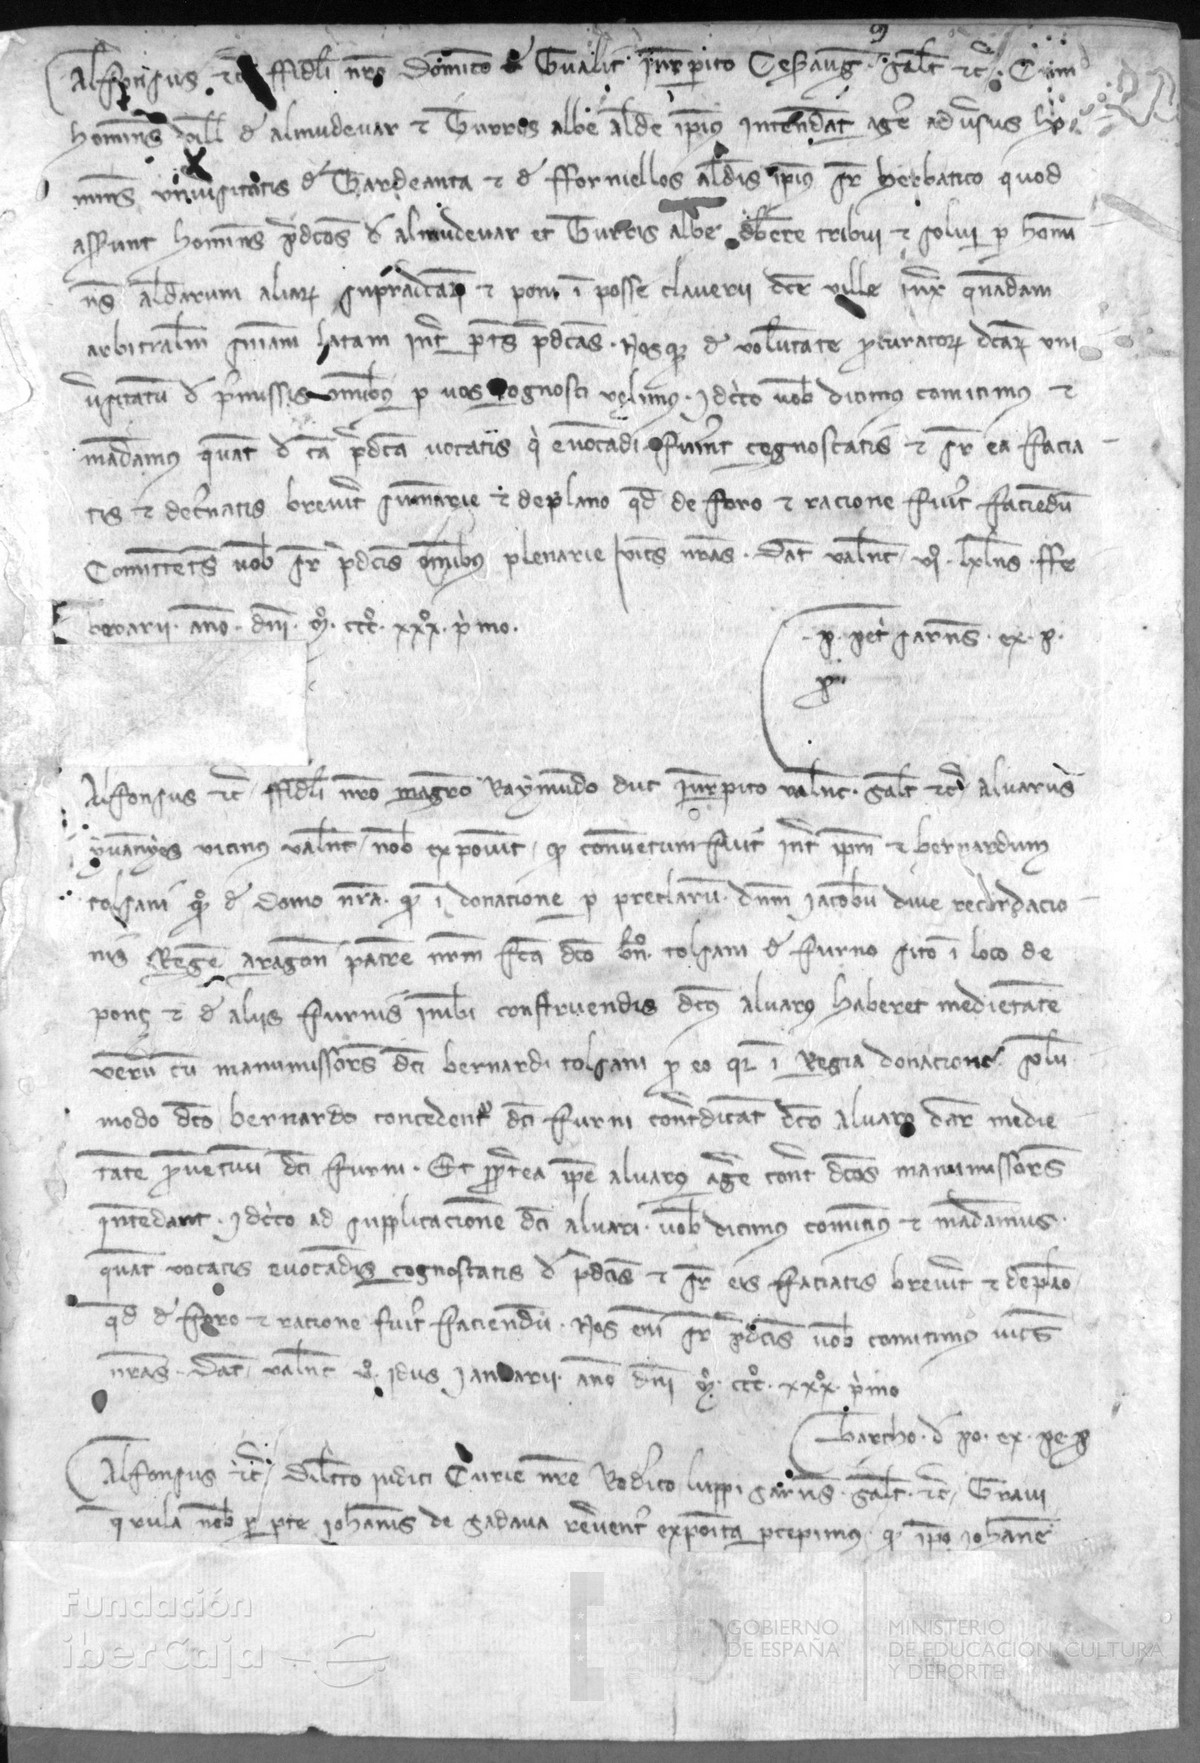 Alfonsus etc ffideli nro Dominico de Tvalit jurisperito Cesaraug salt etc Cum
homines vall de almudevar et Turres albe alde ipius intendat agere adversus ho
mines universitatis de Tardeanta et de fforniellos aldeis ipius sr herbatico quod
asserunt homines pdcos d almudevar et Turris albe debere tribui et solvi p homi
nes aldearum aliar supradcar et poni i posse claverii dce ville iux quandam
arbitralem sniam latam inter ptes pdcas. Nosq de voluntate procurator dcar uni
versitatum d pmissis omibus p vos cognosci velimus. Idcirco vob dicimus comitimus et
mandamus quat d ca pdca vocatis qi evocadi fuerint cognoscatis et sr ea facia
tis et decernatis breviter sumarie et de plano qd de foro et racione fuerit faciendum
Comittentes vob sr pdcis omibus plenarie vices nras. Dat valnc vi. klns. ffe
bruarii. ano. dni. mo. ccco. xxxo. primo.
p. petr garns. ex. p.
p
Alfonsus etc ffideli nro magro Raymundo duc jurisperito valnc. salt etc alvarus
yvanyes vicinus valnt nob exposuit q conventum fuit inter ipm et bernardum
tolsani qo de Domo nra. q i donacione p preclarum. dnm Jacobum dive recordacio
nis Regem aragon patrem nrm fca dco bn. tolsani de furno sito i loco de
ponç et de aliis furnis inibi construendis dcus alvarus haberet medietatem
verum cum manumissores dci bernardi tolsani p eo qr i Regia donacione solum
modo dco bernardo concedentur dci furni contradicat dco alvaro dare medie
tatem proventuum dci furni. Et propterea ipe alvarus agere contra dcos manumissores
intendant. Idcirco ad supplicacionem dci alvari. vob dicimus comitimus et mandamus.
quat vocatis evocandis cognoscatis d pdcis et sr eis faciatis breviter et de plano
qd de foro et racione fuerit faciendum. Nos eni sr pdcis vob comitimus vices
nras. Dat valnc vo. idus Januarii. ano dni mo. ccco. xxxo. primo
bartho. d po. ex. pe. p
Alfonsus etc Dilecto judici Curie nre Roderico luppi garns. salt. etc Gravi
querula nob p pte johanis de gadava reverenter exposita pcepimus q ipo johane
Fundación
iberCaja
GOBIERNO
DE ESPAÑA
MINISTERIO
DE EDUCACIÓN, CULTURA
Y DEPORTE